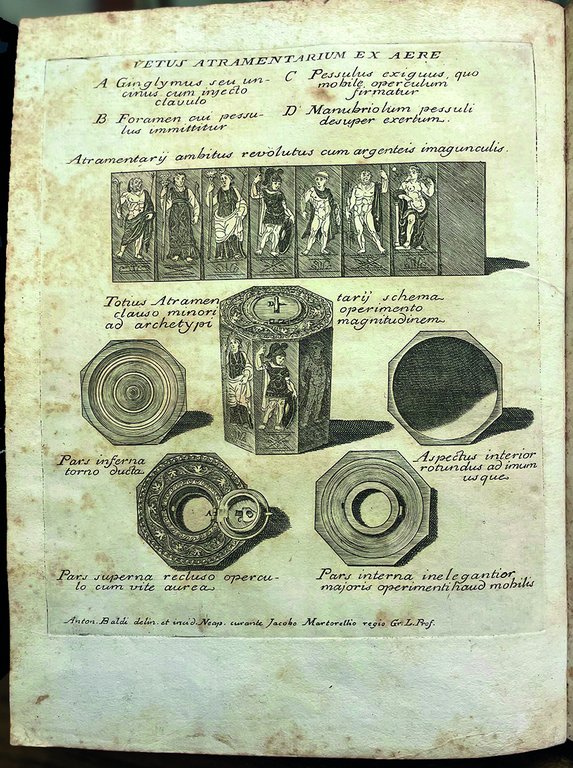 VETUS ATRAMENTARIUM EX AERE
A Ginglymus seu un-
cinus cum injecto
clavulo
B Foramen cui pessu-
lus immittitur
C Pessulus exiguus, quo
mobile operculum
firmatur
D Manubriolum pessuli
desuper exertum.
Atramentarij ambitus revolutus cum argenteis imagunculis.
Totius Atramen tarij schema
clauso minori operimento
ad archetypi magnitudinem
D
Pars inferna
torno ducta
Aspectus interior
rotundus ad imum
usque
A
Pars superna recluso opercu-
lo cum vite aurea
Pars interna inelegantior
majoris operimenti haud mobilis
Anton. Baldi delin. et incid. Neap. curante Jacobo Martorellio regio Gr. L. Prof.